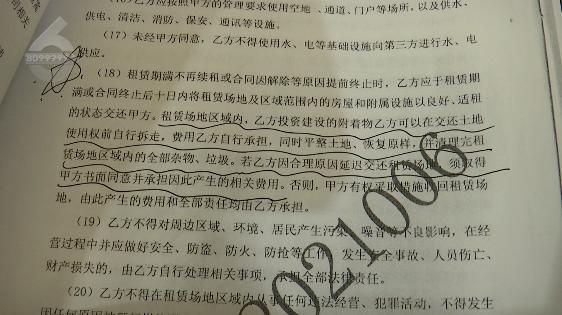 (16)乙方应按照甲方的管理要求使用空地、通道、门户等场所,以及供水、
供电、清洁、消防、保安、通讯等设施。
(17)未经甲方同意,乙方不得使用水、电等基础设施向第三方进行水、电
供应。
(18)租赁期满不再续租或合同因解除等原因提前终止时,乙方应于租赁期
满或合同终止后十日内将租赁场地及区域范围内的房屋和附属设施以良好、适租
的状态交还甲方。租赁场地区域内,乙方投资建设的附着物乙方可以在交还土地
使用权前自行拆走,费用乙方自行承担,同时平整土地、恢复原样,并清理完租
赁场地区域内的全部杂物、垃圾。若乙方因合理原因延迟交还租赁场地,须取得
甲方书面同意并承担因此产生的相关费用。否则,甲方有权采取措施收回租赁场
地,由此产生的费用和全部责任均由乙方承担。
(19)乙方不得对周边区域、环境、居民产生污染、噪音等不良影响,在经
营过程中并应做好安全、防盗、防火、防抢等工作,发生安全事故、人员伤亡、
财产损失的,由乙方自行处理相关事项,承担全部法律责任。
(20)乙方不得在租赁场地区域内从事任何违法经营、犯罪活动,不得发生
3021006